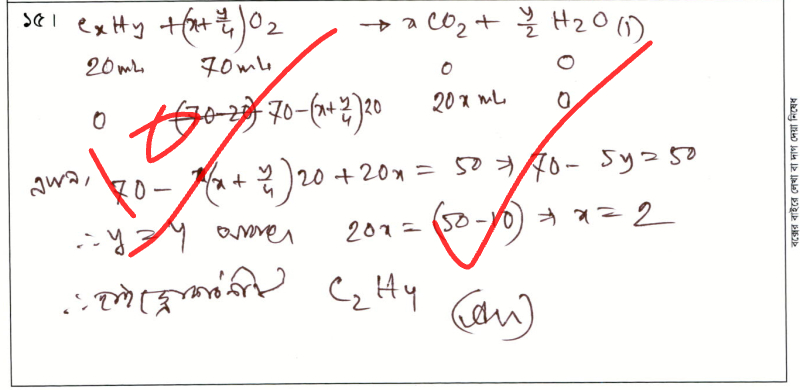 ১৫। CxHy + (x+y/4)O2 → x CO2 + y/2 H2O (l)
20mL 70mL 0 0
0 (70-20) 70-(x+y/4)20 20x mL 0
এখন, 70 - (x+y/4)20 + 20x = 50 ⇒ 70 - 5y = 50
∴ y = 4 আবার 20x = (50-10) ⇒ x = 2
∴ হাইড্রোকার্বনটি C2H4 (Ans)
বক্সের বাইরে লেখা বা দাগ দেয়া নিষেধ